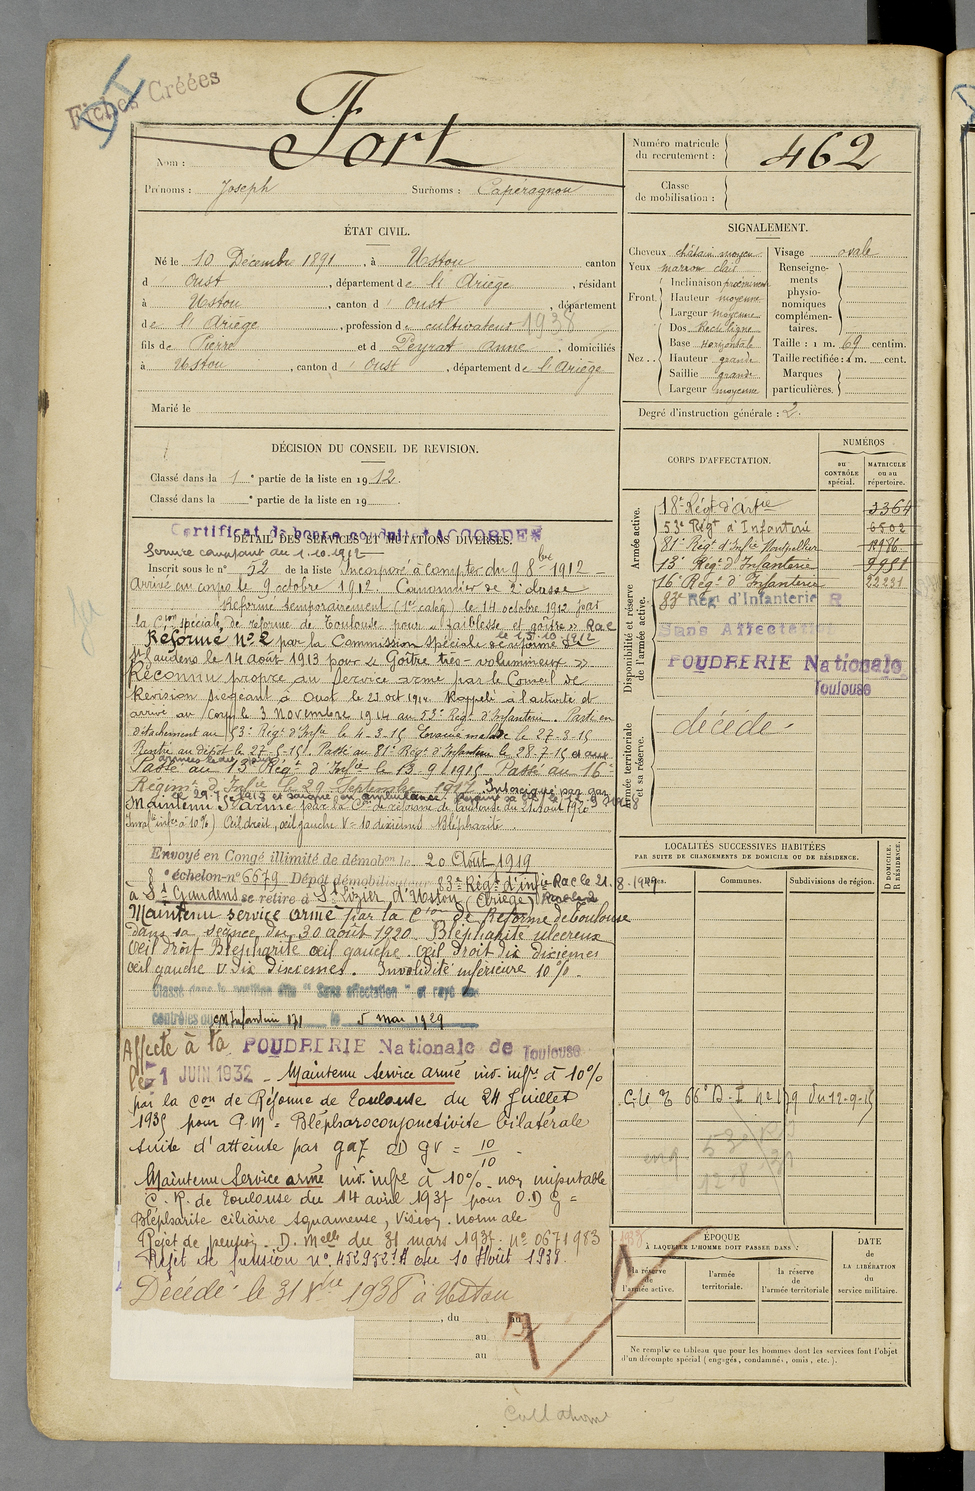 Fiches Créées
Nom : Fort
Prénoms : Joseph Surnoms : Capéragnou
Numéro matricule du recrutement : 462
Classe de mobilisation :
ÉTAT CIVIL.
Né le 10 Décembre 1891, à Ustou canton
d' Oust, département de l'Ariège, résidant
à Ustou, canton d' Oust, département
de l'Ariège, profession de cultivateur 1938
fils de Pierre et d Peyrat Anne, domiciliés
à Ustou, canton d' Oust, département de l'Ariège
Marié le
DÉCISION DU CONSEIL DE REVISION.
Classé dans la 1e partie de la liste en 1912.
Classé dans la e partie de la liste en 19
SIGNALEMENT.
Cheveux châtain moyen
Yeux marron clair
Front. Inclinaison proéminent
Hauteur moyenne
Largeur moyenne
Nez.. Dos Rectiligne
Base Horizontale
Hauteur grande
Saillie grande
Largeur moyenne
Visage ovale
Renseignements physionomiques complémentaires.
Taille : 1 m. 69 centim.
Taille rectifiée : 1 m. cent.
Marques particulières.
Degré d'instruction générale : 2.
Certificat de bonne conduite ACCORDÉ
DÉTAIL DES SERVICES ET MUTATIONS DIVERSES.
Service comptant du 1.10.1912
Inscrit sous le no 52 de la liste Incorporé à compter du 9 8bre 1912 -
Arrivé au corps le 9 octobre 1912. Canonnier de 2e classe
Réformé temporairement (1re catég) le 14 octobre 1912 par
la Cion spéciale de réforme de Toulouse pour « faiblesse et goître » Rac
le 15.10.1912
Réformé No 2 par la Commission Spéciale de réforme de
St Gaudens le 14 août 1913 pour « Goître très-volumineux »
Reconnu propre au service armé par le Conseil de
Révision siégeant à Oust le 22 oct 1914. Rappelé à l'activité et
arrivé au Corps le 3 Novembre 1914 au 53e Régt d'Infanterie. Passé en
détachement au 53e Régt d'Infie le 4-3-15. Evacué malade le 27-3-15
Rentré au dépôt le 27-5-15. Passé au 81e Régt d'Infanterie le 28-7-15 et aux
armées le dit jour
Passé au 13e Régt d'Infie le 13-9-1915 Passé au 16e
Régimt d'Infie le 29 Septembre 1917 Intoxiqué par gaz
Maintenu Sce armé par la Con de réforme de Toulouse du 21 août 1920
Inval(té infre à 10%) Œil droit, œil gauche V= 10 dixièmes Blépharite.
Envoyé en Congé illimité de démobon le 20 Août 1919
8e échelon-no 6679 Dépôt démobilisateur 83e Régt d'infie Rac le 21.8.1919
à St Gaudens se retire à St Lizier d'Ustou (Ariège)
Maintenu service armé par la Cion de Réforme de Toulouse
dans sa séance du 30 août 1920. Blépharite ulcéreux
œil droit Blépharite œil gauche. Œil droit dix dixièmes
œil gauche V dix dixièmes. Invalidité inférieure 10%.
Classé dans la position dite "Sans affectation" et rayé des
contrôles du CM Infanterie 171 le 5 mai 1929
Affecté à la POUDRERIE Nationale de Toulouse
le 1 JUIN 1932 - Maintenu Service armé inv. infre à 10%
par la Con de Réforme de Toulouse du 24 Juillet
1935 pour P.M = Blépharoconjonctivite bilatérale
suite d'atteinte par gaz OD GV = 10/10 -
Maintenu Service armé inv. infre à 10% - non imputable
C.R. de Toulouse du 14 avril 1937 pour O.D G =
Blépharite ciliaire squameuse, Vision normale
Rejet de pension D. Melle du 31 mars 1937. no 0671983
Rejet de pension no 452952 A du 10 Août 1938.
Décédé le 31 Xbre 1938 à Ustou
, du au
au
au
CORPS D'AFFECTATION.
NUMÉROS
au CONTRÔLE spécial.
MATRICULE ou au répertoire.
Armée active.
18e Régt d'Artie 3364
53e Régt d'Infanterie 6502
81e Régt d'Infie Montpellier
13e Régt d'Infanterie 9951
16e Régt d'Infanterie 22231
Disponibilité et réserve de l'armée active.
83e Rég. d'Infanterie R
Sans Affectation
POUDRERIE Nationale
Toulouse
Armée territoriale et sa réserve.
décédé
LOCALITÉS SUCCESSIVES HABITÉES
PAR SUITE DE CHANGEMENTS DE DOMICILE OU DE RÉSIDENCE.
Communes.
Subdivisions de région.
D DOMICILE.
R RÉSIDENCE.
ÉPOQUE
À LAQUELLE L'HOMME DOIT PASSER DANS :
la réserve de l'armée active.
l'armée territoriale.
la réserve de l'armée territoriale
DATE de LA LIBÉRATION du service militaire.
Ne remplir ce tableau que pour les hommes dont les services font l'objet
d'un décompte spécial (engagés, condamnés, omis, etc.).